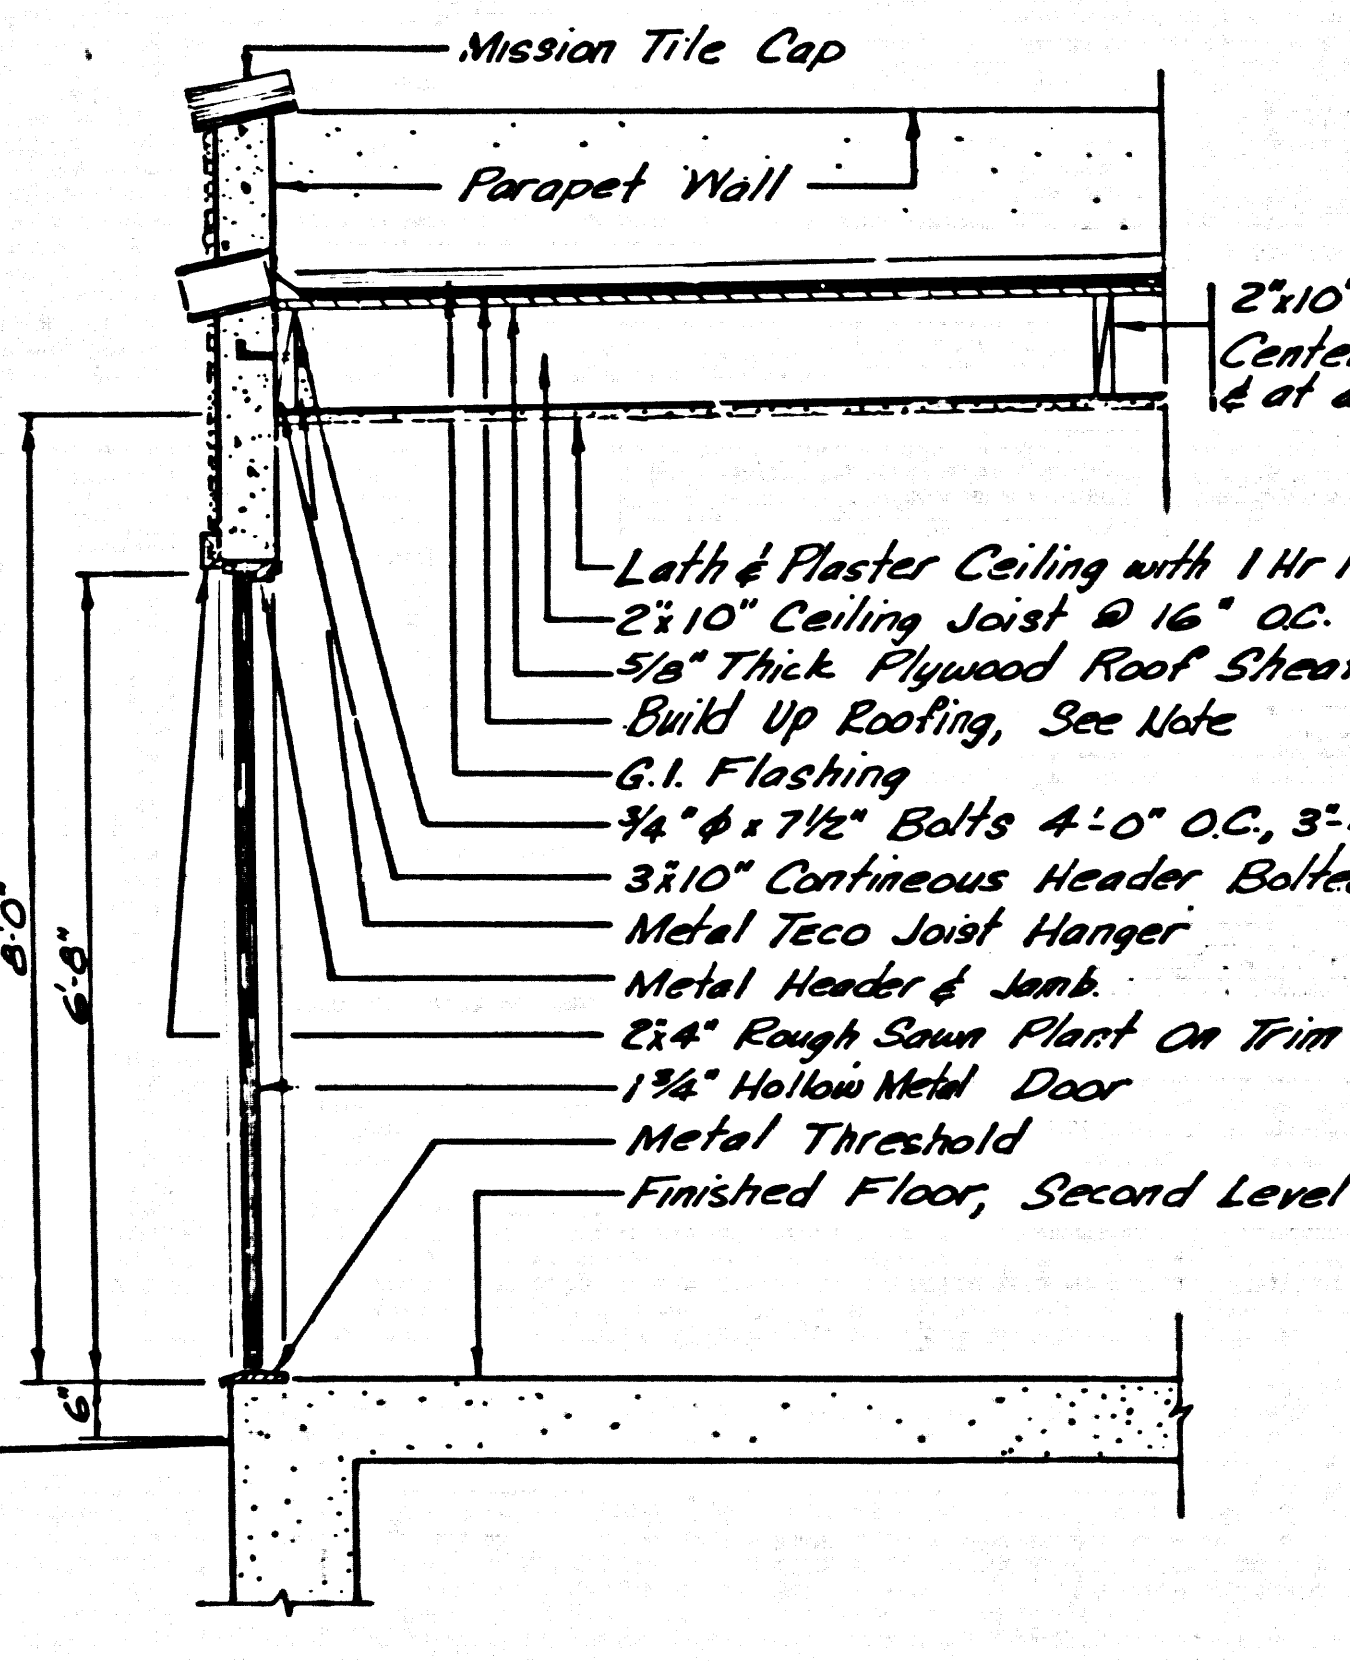 Mission Tile Cap
Parapet Wall
2"x10"
Cente
& at
Lath & Plaster Ceiling with 1 Hr
2"x10" Ceiling Joist @ 16" O.C.
5/8" Thick Plywood Roof Shea
Build Up Roofing, See Note
G.I. Flashing
3/4" ϕ x 7 1/2" Bolts 4'-0" O.C., 3"-
3"x10" Contineous Header Bolte
Metal TECO Joist Hanger
Metal Header & Jamb.
2"x4" Rough Sawn Plant On Trim
1 3/4" Hollow Metal Door
Metal Threshold
Finished Floor, Second Level
8'-0"
6'-8"
6"